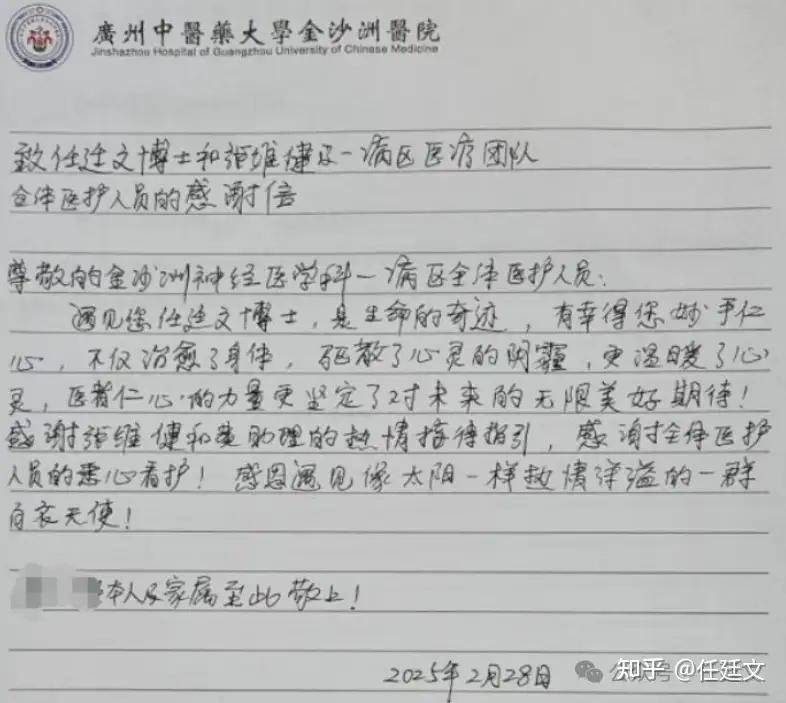 廣州中醫藥大學金沙洲醫院
Jinshazhou Hospital of Guangzhou University of Chinese Medicine
致任廷文博士和张维健及一病区医疗团队
全体医护人员的感谢信
尊敬的金沙洲神经医学科一病区全体医护人员:
遇见您任廷文博士，是生命的奇迹，有幸得您妙手仁
心，不仅治愈了身体，驱散了心灵的阴霾，更温暖了心
灵，医者仁心的力量更坚定了对未来的无限美好期待!
感谢张维健和娄助理的热情接待指引，感谢全体医护
人员的悉心看护! 感恩遇见像太阳一样热情洋溢的一群
白衣天使!
本人及家属至此敬上!
2025年2月28日
知乎 @任廷文